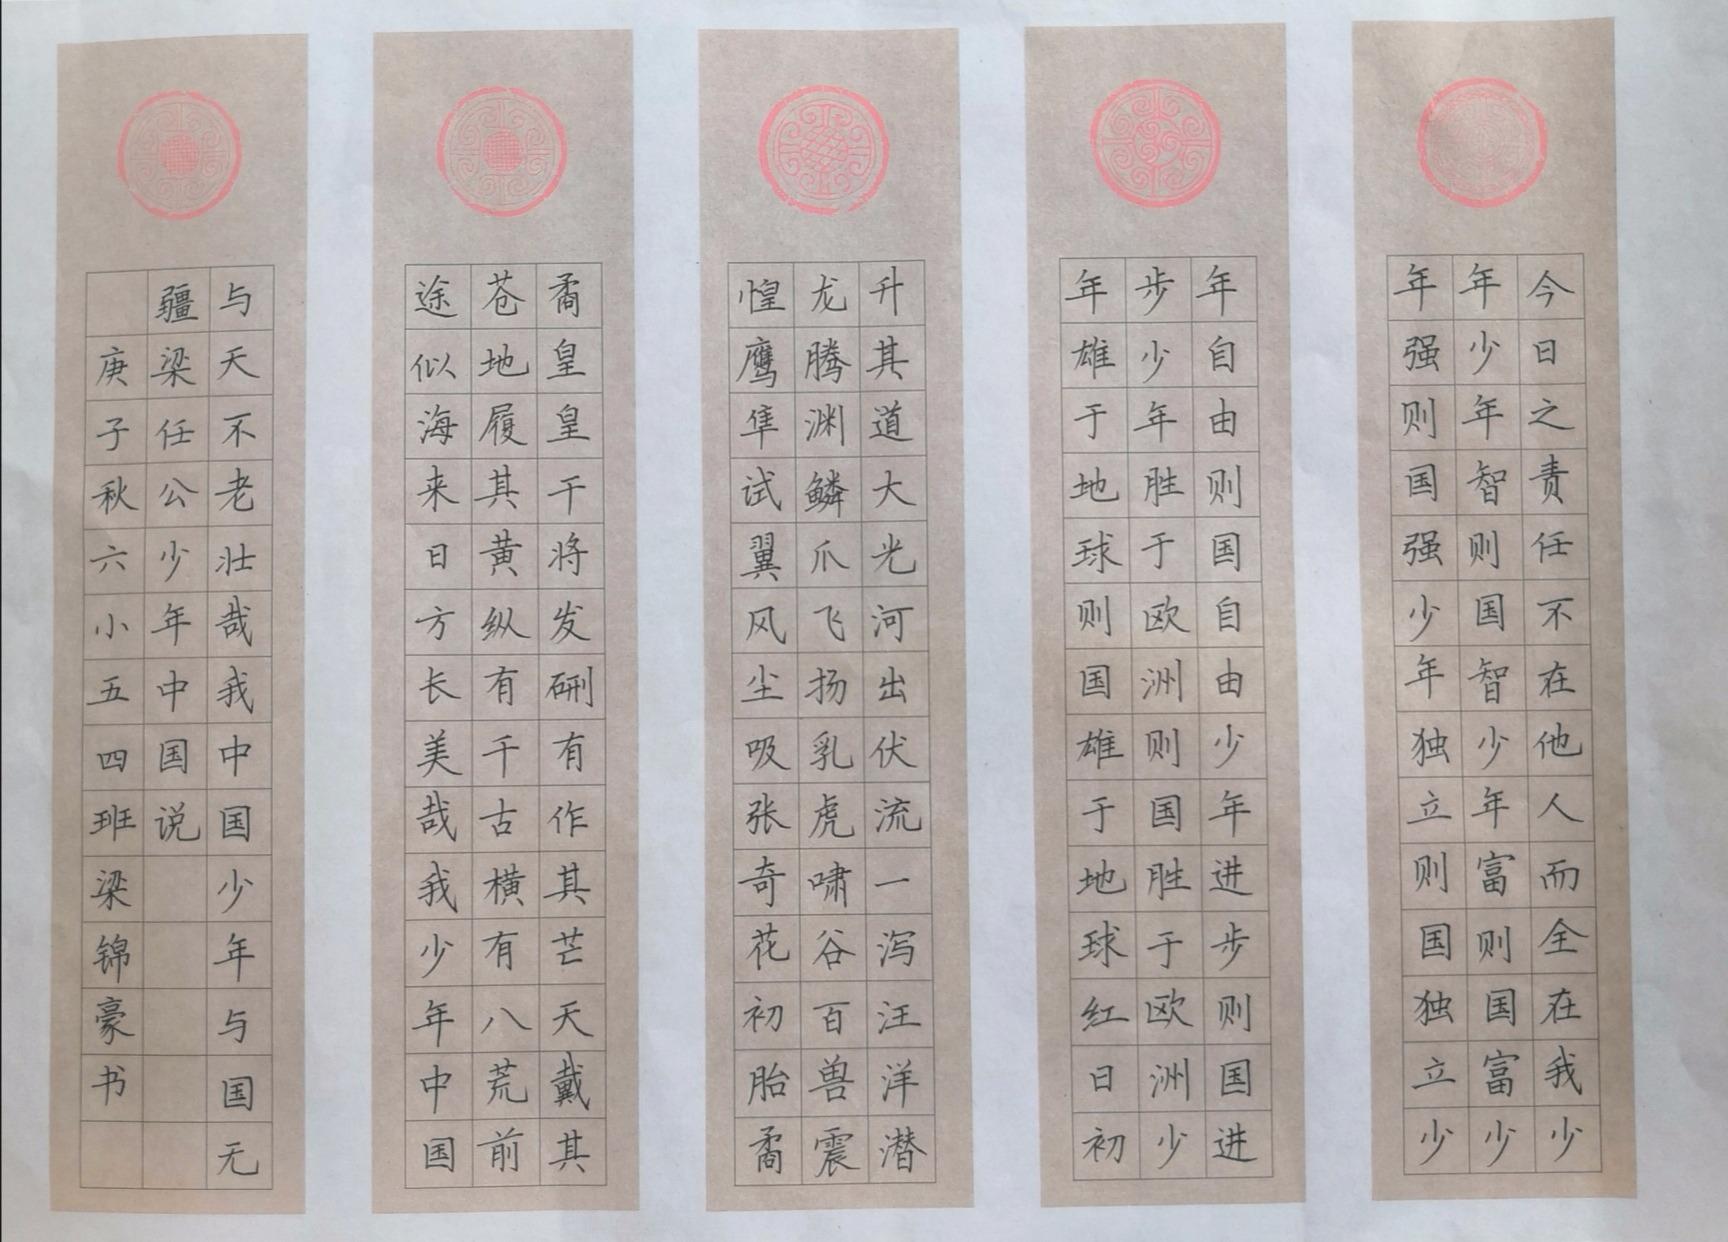 今日之责任不在他人而全在我少
年少年智则国智少年富则国富少
年强则国强少年独立则国独立少
年自由则国自由少年进步则国进
步少年胜于欧洲则国胜于欧洲少
年雄于地球则国雄于地球红日初
升其道大光河出伏流一泻汪洋潜
龙腾渊鳞爪飞扬乳虎啸谷百兽震
惶鹰隼试翼风尘吸张奇花初胎矞
矞皇皇干将发硎有作其芒天戴其
苍地履其黄纵有千古横有八荒前
途似海来日方长美哉我少年中国
与天不老壮哉我中国少年与国无
疆梁任公少年中国说
庚子秋六小五四班梁锦豪书